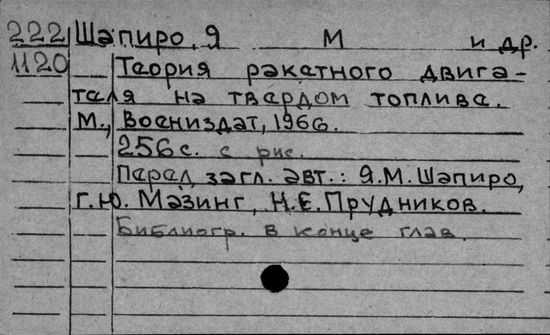 222 Шапиро, Я М и др.
1120 Теория ракетного двига-
теля на твёрдом топливе.
М., Воениздат, 1966.
256 с. с рис.
Перед загл. авт.: Я.М. Шапиро,
Г.Ю. Мазинг, Н.Е. Прудников.
Библиогр. в конце глав.